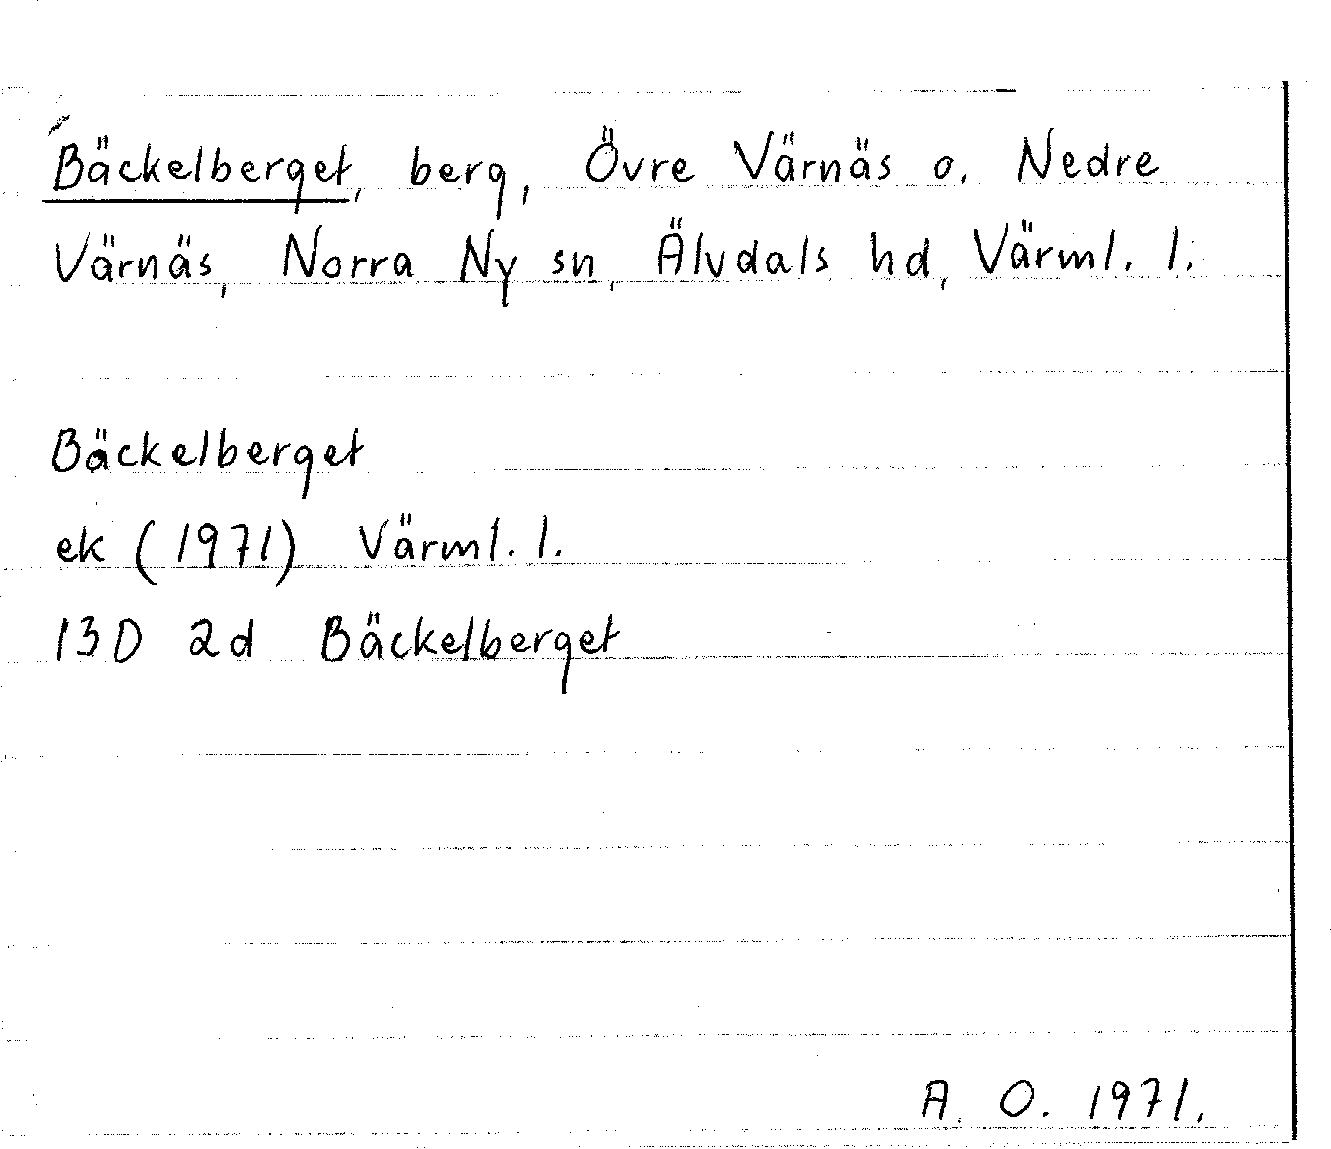 Bäckelberget, berg, Övre Värnäs o. Nedre
Värnäs, Norra Ny sn, Älvdals hd, Värml. l.
Bäckelberget
ek (1971) Värml. l.
13D 2d Bäckelberget
A. O. 1971.